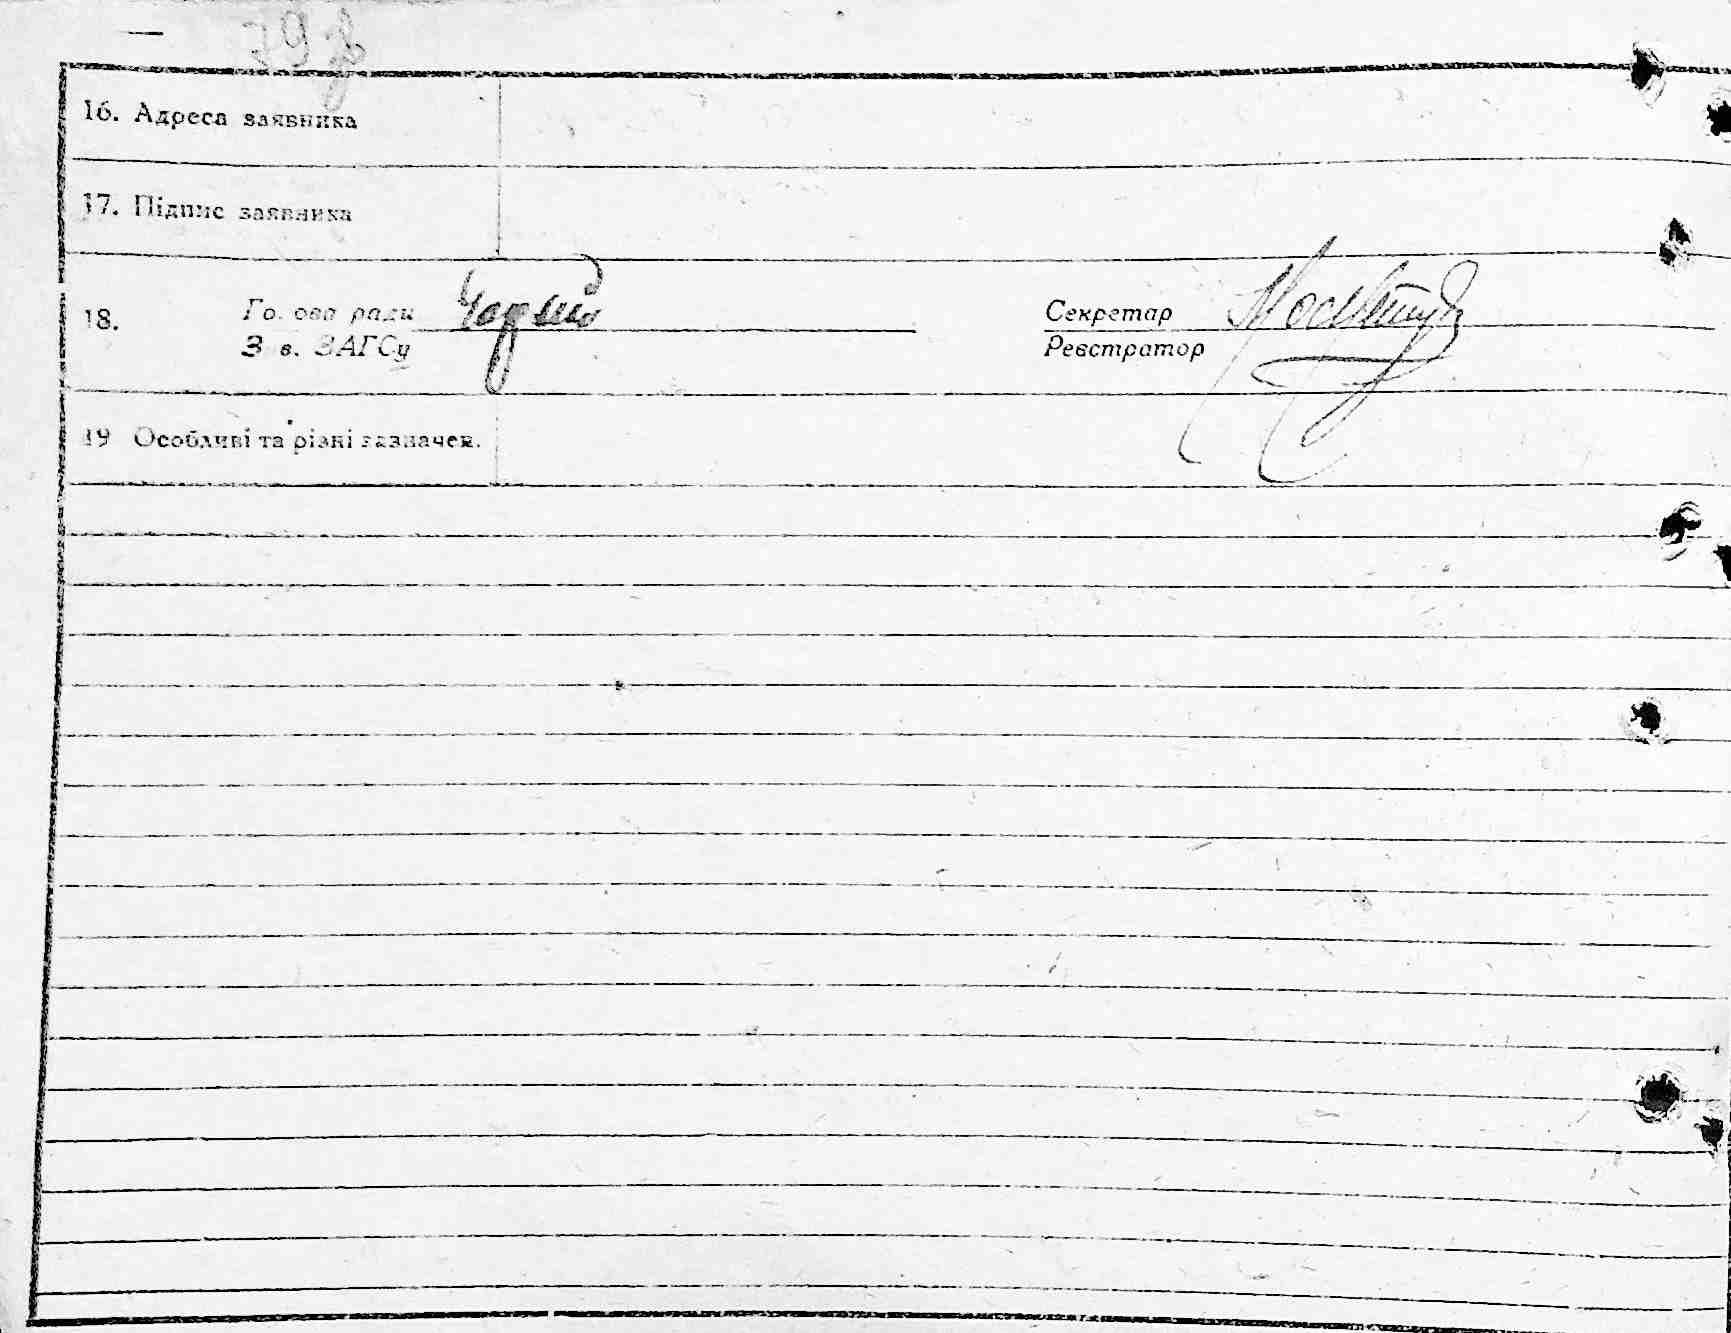 79
16. Адреса заявника
17. Підпис заявника
18. Го. ова ради Секретар
З в. ЗАГСу Реєстратор
19 Особливі та різні зазначен.